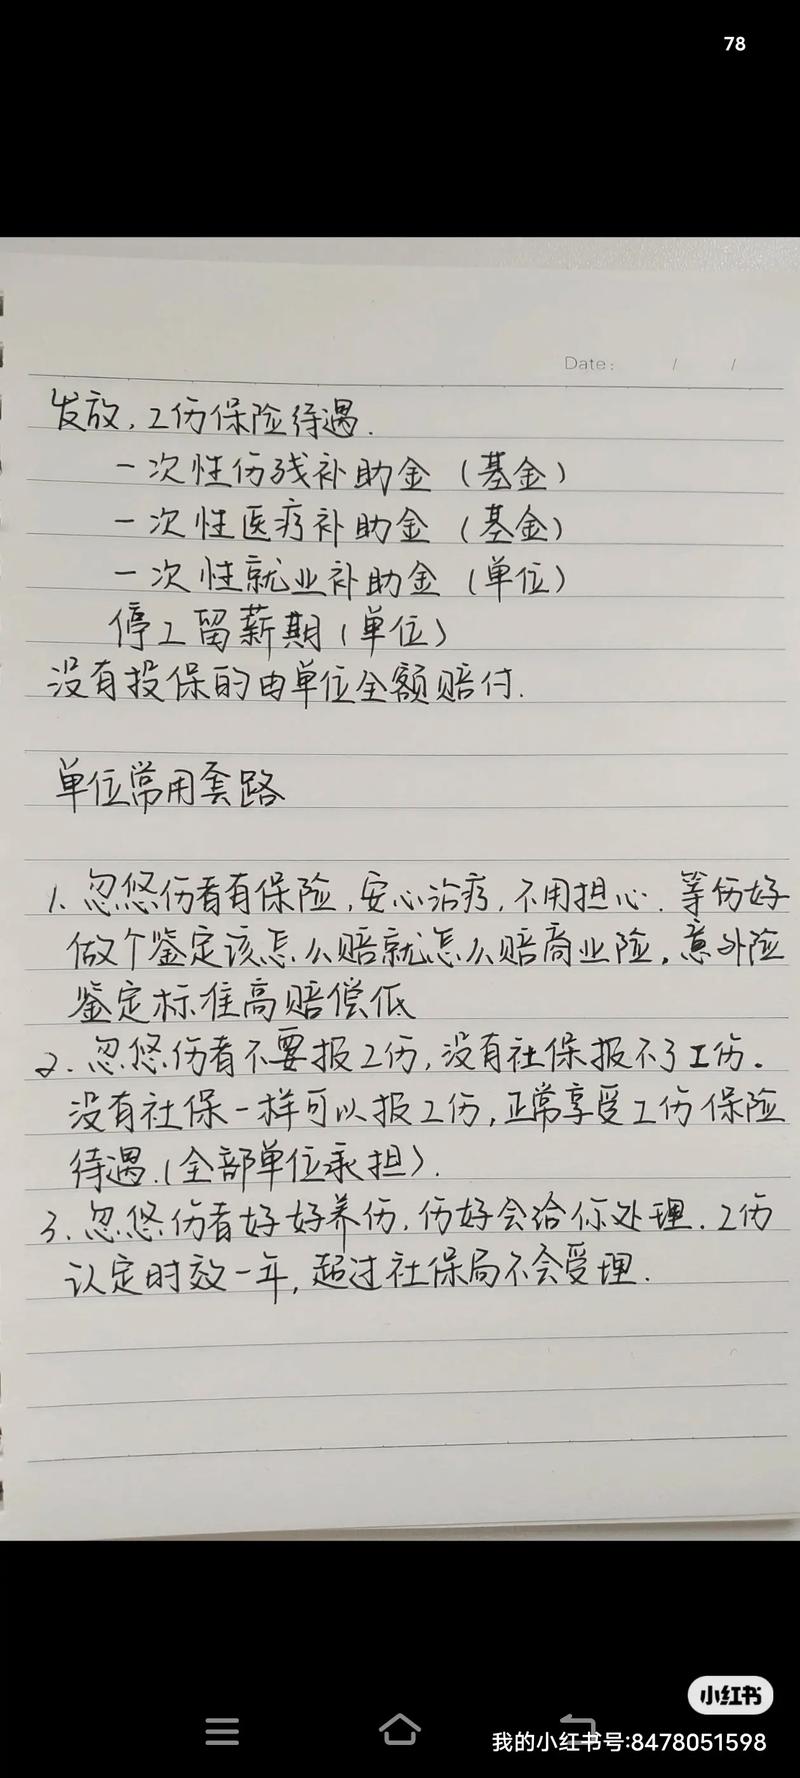 78
Date: / /
发放，工伤保险待遇.
一次性伤残补助金（基金）
一次性医疗补助金（基金）
一次性就业补助金（单位）
停工留薪期（单位）
没有投保的由单位全额赔付.
单位常用套路
1. 忽悠伤者有保险，安心治疗，不用担心. 等伤好
做个鉴定该怎么赔就怎么赔商业险，意外险
鉴定标准高赔偿低
2. 忽悠伤者不要报工伤，没有社保报不了工伤.
没有社保一样可以报工伤，正常享受工伤保险
待遇.（全部单位承担）.
3. 忽悠伤者好好养伤，伤好会给你处理. 工伤
认定时效一年，超过社保局不会受理.
小红书
我的小红书号:8478051598